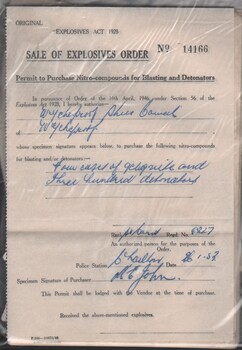 ORIGINAL
EXPLOSIVES ACT 1928.
SALE OF EXPLOSIVES ORDER
No 14166
Permit to Purchase Nitro-compounds for Blasting and Detonators
In pursuance of Order of the 16th April, 1946 under Section 56 of the
Explosives Act 1928, I hereby authorize—
Wycheproof Shire Council
of Wycheproof
whose specimen signature appears below, to purchase the following nitro-compounds
for blasting and/or detonators:—
Four cases of gelignite and
three hundred detonators
Regd. No. 8827
An authorized person for the purposes of the
Order.
Police Station
Specimen Signature of Purchaser
This Permit shall be lodged with the Vendor at the time of purchase.
Received the above-mentioned explosives.